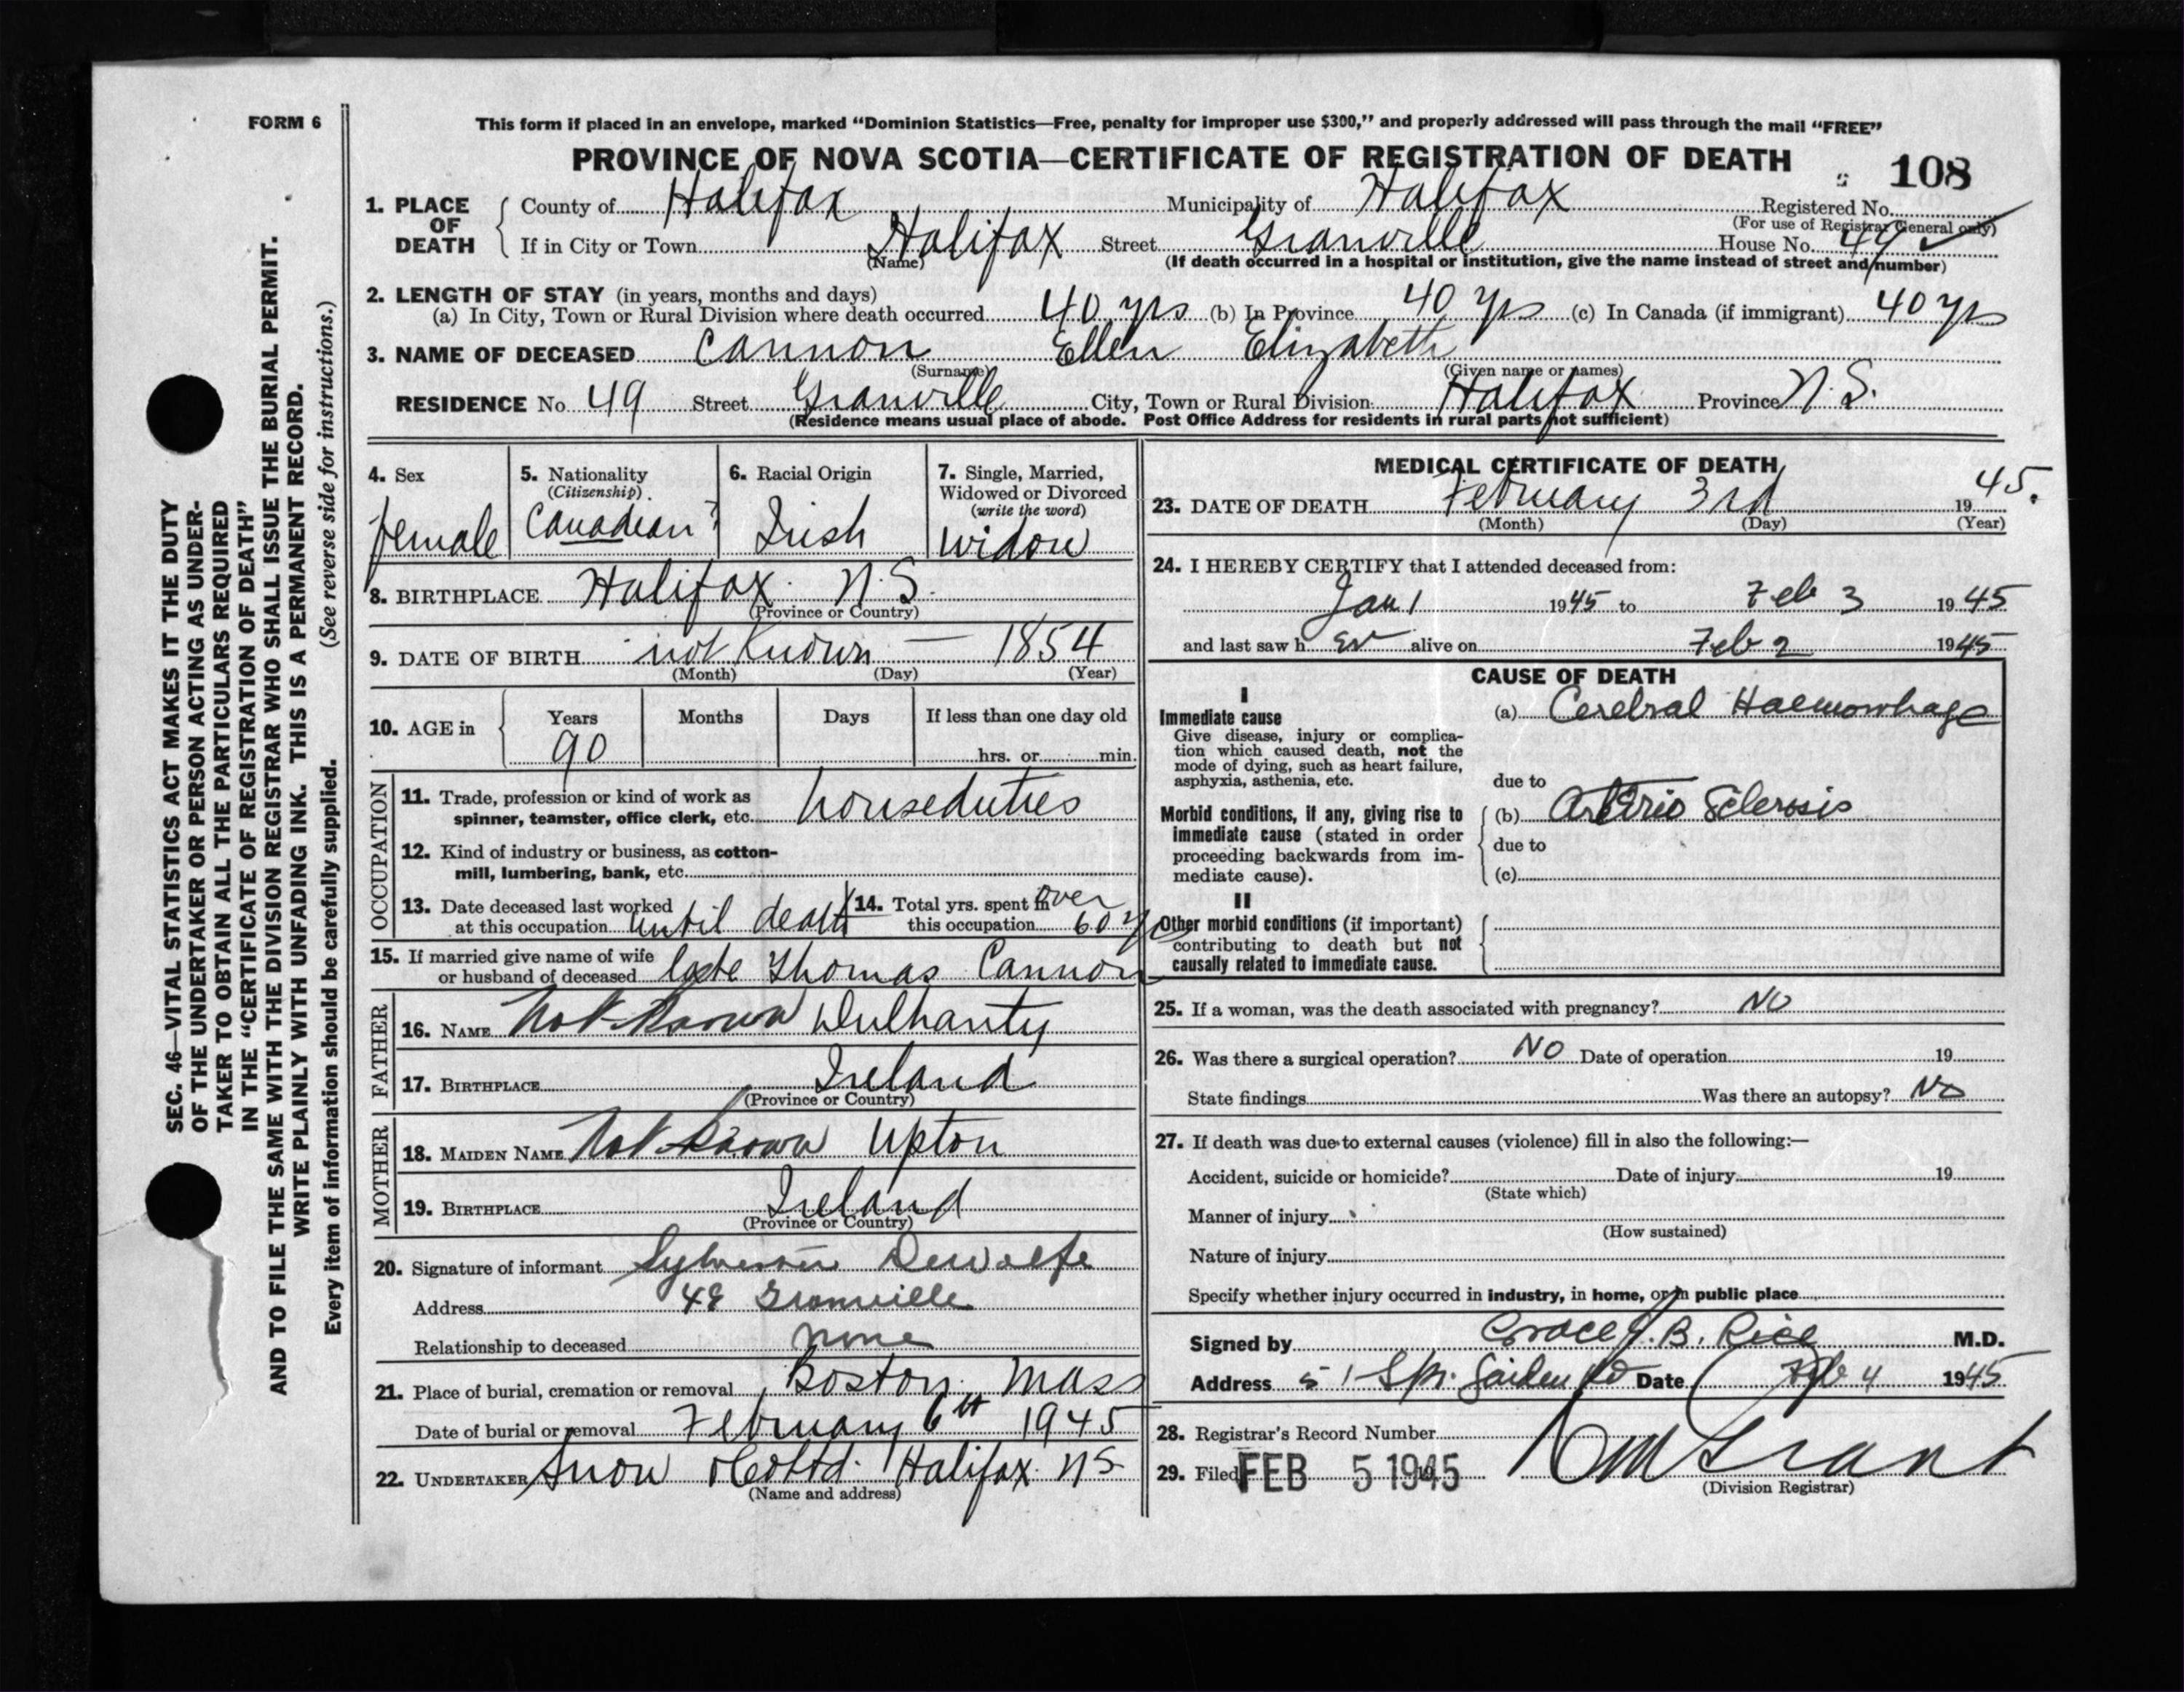 FORM 6
This form if placed in an envelope, marked “Dominion Statistics—Free, penalty for improper use $300,” and properly addressed will pass through the mail “FREE”
PROVINCE OF NOVA SCOTIA—CERTIFICATE OF REGISTRATION OF DEATH
108
1. PLACE OF DEATH
County of Halifax Municipality of Halifax Registered No.
(For use of Registrar General only)
If in City or Town Halifax Street Granville House No. 49
(Name) (If death occurred in a hospital or institution, give the name instead of street and number)
2. LENGTH OF STAY (in years, months and days)
(a) In City, Town or Rural Division where death occurred 40 yrs (b) In Province 40 yrs (c) In Canada (if immigrant) 40 yrs
3. NAME OF DECEASED Cannon Ellen Elizabeth
(Surname) (Given name or names)
RESIDENCE No. 49 Street Granville City, Town or Rural Division Halifax Province N.S.
(Residence means usual place of abode. Post Office Address for residents in rural parts not sufficient)
4. Sex
female
5. Nationality
(Citizenship)
Canadian ?
6. Racial Origin
Irish
7. Single, Married,
Widowed or Divorced
(write the word)
Widow
8. BIRTHPLACE Halifax. N.S.
(Province or Country)
9. DATE OF BIRTH not known — 1854
(Month) (Day) (Year)
10. AGE in Years Months Days If less than one day old
90 hrs. or min.
OCCUPATION
11. Trade, profession or kind of work as
spinner, teamster, office clerk, etc. houseduties
12. Kind of industry or business, as cotton-
mill, lumbering, bank, etc.
13. Date deceased last worked
at this occupation until death
14. Total yrs. spent in over
this occupation 60 yrs
15. If married give name of wife
or husband of deceased late Thomas Cannon
FATHER
16. NAME Not Known Dulhanty
17. BIRTHPLACE Ireland
(Province or Country)
MOTHER
18. MAIDEN NAME Not Known Upton
19. BIRTHPLACE Ireland
(Province or Country)
20. Signature of informant Sylvester DeWolfe
Address 49 Granville
Relationship to deceased none
21. Place of burial, cremation or removal Boston. Mass
Date of burial or removal February 6th 1945
22. UNDERTAKER Snow & Co Ltd. Halifax. NS
(Name and address)
MEDICAL CERTIFICATE OF DEATH
23. DATE OF DEATH February 3rd 1945.
(Month) (Day) (Year)
24. I HEREBY CERTIFY that I attended deceased from:
Jan 1 1945 to Feb 3 1945
and last saw her alive on Feb 2 1945
CAUSE OF DEATH
I
Immediate cause
Give disease, injury or complica-
tion which caused death, not the
mode of dying, such as heart failure,
asphyxia, asthenia, etc.
(a) Cerebral Haemorrhage
due to
Morbid conditions, if any, giving rise to
immediate cause (stated in order
proceeding backwards from im-
mediate cause).
(b) Arterio Sclerosis
due to
(c)
II
Other morbid conditions (if important)
contributing to death but not
causally related to immediate cause.
25. If a woman, was the death associated with pregnancy? NO
26. Was there a surgical operation? NO Date of operation 19
State findings Was there an autopsy? NO
27. If death was due to external causes (violence) fill in also the following:—
Accident, suicide or homicide? Date of injury 19
(State which)
Manner of injury
(How sustained)
Nature of injury
Specify whether injury occurred in industry, in home, or in public place
Signed by Grace J. B. Rice M.D.
Address 51 Spr. Garden Rd Date Feb 4 1945
28. Registrar's Record Number
29. Filed FEB 5 1945 Grant
(Division Registrar)
SEC. 46—VITAL STATISTICS ACT MAKES IT THE DUTY
OF THE UNDERTAKER OR PERSON ACTING AS UNDER-
TAKER TO OBTAIN ALL THE PARTICULARS REQUIRED
IN THE “CERTIFICATE OF REGISTRATION OF DEATH”
AND TO FILE THE SAME WITH THE DIVISION REGISTRAR WHO SHALL ISSUE THE BURIAL PERMIT.
WRITE PLAINLY WITH UNFADING INK. THIS IS A PERMANENT RECORD.
Every item of information should be carefully supplied. (See reverse side for instructions.)